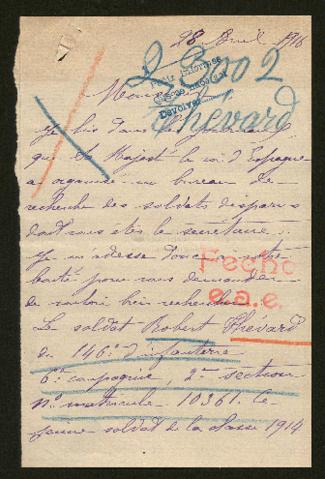 28 Avril 1916
L 3002
Thévard
Monsieur
Devolver
J'ai lu dans
que Sa Majesté le roi d'Espagne
a organisé un bureau de
recherche des soldats disparus
dont vous êtes le secrétaire.
Je m'adresse donc à votre
bonté pour vous demander
de vouloir bien rechercher
Fecho
e.a.e.
Le soldat Robert Thévard
du 146e d'infanterie
6e compagnie, 2me section
no matricule 10361. Ce
jeune soldat de la classe 1914